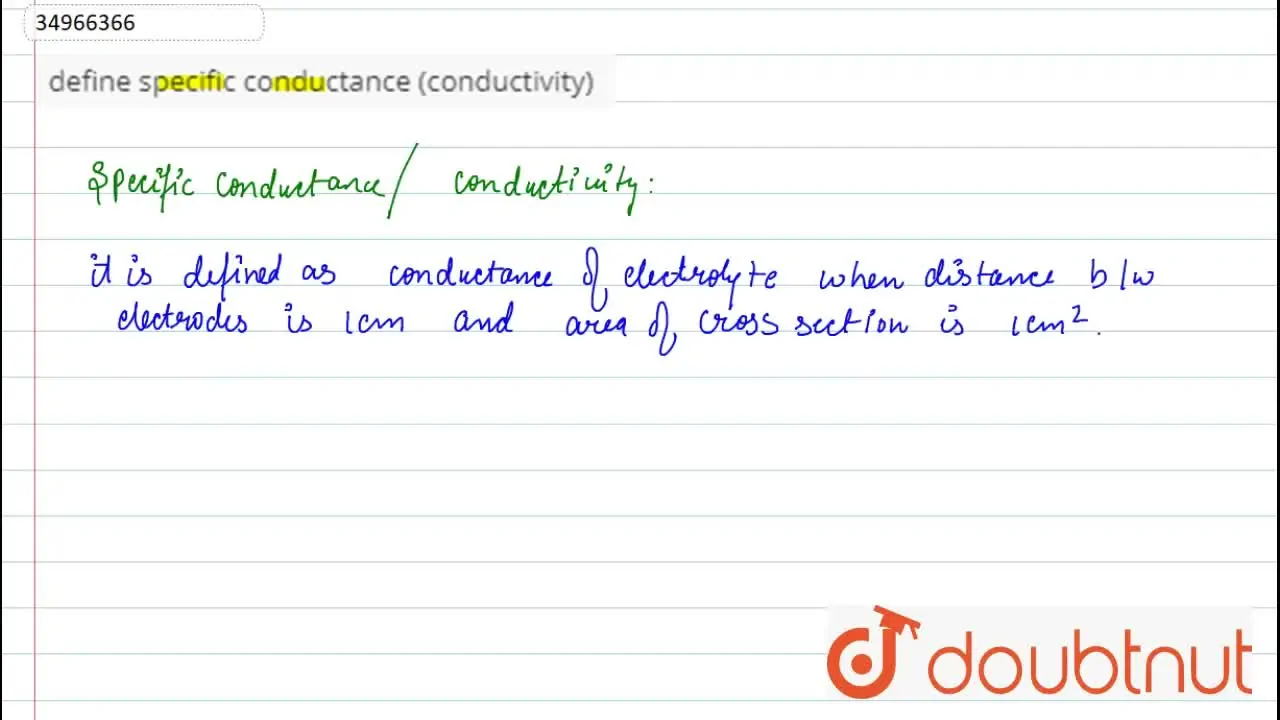 34966366
define specific conductance (conductivity)
Specific conductance/ conductivity:
it is defined as conductance of electrolyte when distance b/w
electrodes is 1cm and area of cross section is 1cm².
doubtnut